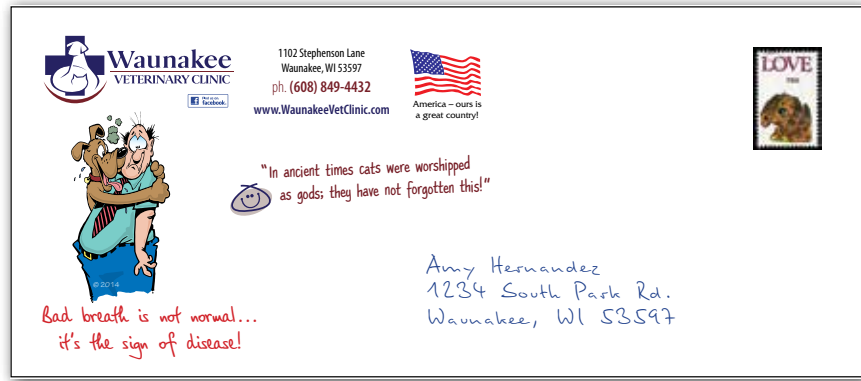 Waunakee
VETERINARY CLINIC
Find us on
facebook.
1102 Stephenson Lane
Waunakee, WI 53597
ph. (608) 849-4432
www.WaunakeeVetClinic.com
America – ours is
a great country!
LOVE
"In ancient times cats were worshipped
as gods; they have not forgotten this!"
© 2014
Bad breath is not normal...
it's the sign of disease!
Amy Hernandez
1234 South Park Rd.
Waunakee, WI 53597